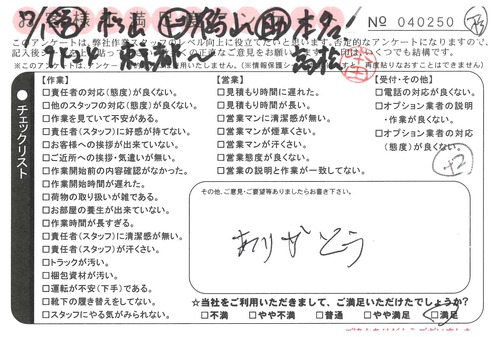 No 040250
このアンケートは、弊社作業スタッフのレベル向上に役立てたいと思います。否定的なアンケートになりますので、
チェックリスト
【作業】
□責任者の対応(態度)が良くない。
□他のスタッフの対応(態度)が良くない。
□作業を見ていて不安がある。
□責任者(スタッフ)に好感が持てない。
□お客様への挨拶が出来ていない。
□ご近所への挨拶・気遣いが無い。
□作業開始前の内容確認がなかった。
□作業開始時間が遅れた。
□荷物の取り扱いが雑である。
□お部屋の養生が出来ていない。
□作業時間が長すぎる。
□責任者(スタッフ)に清潔感が無い。
□責任者(スタッフ)が汗くさい。
□トラックが汚い。
□梱包資材が汚い。
□運転が不安(下手)である。
□靴下の履き替えをしてない。
□スタッフにやる気がみられない。
【営業】
□見積もり時間に遅れた。
□見積もり時間が長い。
□営業マンに清潔感が無い。
□営業マンが煙草くさい。
□営業マンが汗くさい。
□営業態度が良くない。
□営業の説明と作業が一致してない。
【受付・その他】
□電話の対応が良くない。
□オプション業者の説明・作業が良くない。
□オプション業者の対応(態度)が良くない。
その他、ご意見・ご要望等ありましたらお書き下さい。
ありがとう
☆当社をご利用いただきまして、ご満足いただけたでしょうか?
□不満 □やや不満 □普通 □やや満足 □満足